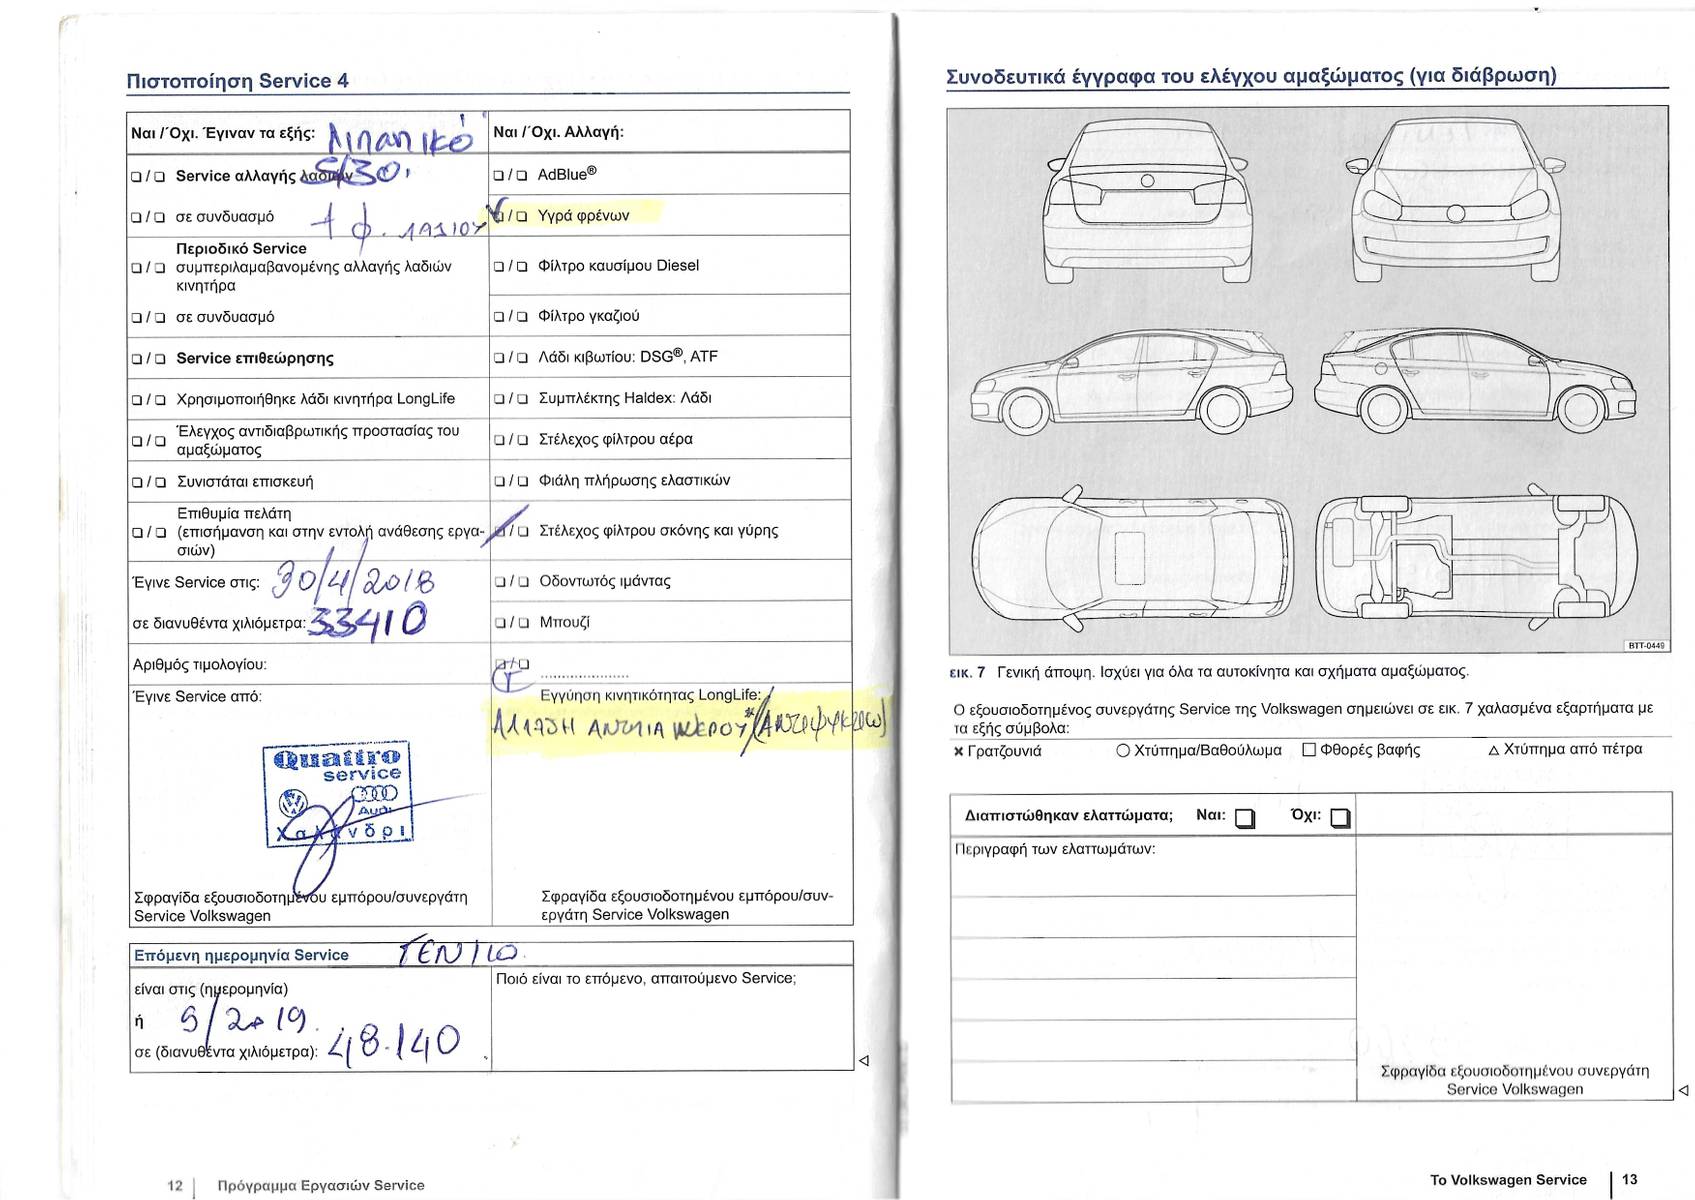 Πιστοποίηση Service 4
Ναι /Όχι. Έγιναν τα εξής: Λιπαντικό
❑ / ❑ Service αλλαγής λαδιών 5/30
❑ / ❑ σε συνδυασμό + φ. λαδιου
Περιοδικό Service
❑ / ❑ συμπεριλαμαβανομένης αλλαγής λαδιών
κινητήρα
❑ / ❑ σε συνδυασμό
❑ / ❑ Service επιθεώρησης
❑ / ❑ Χρησιμοποιήθηκε λάδι κινητήρα LongLife
❑ / ❑ Έλεγχος αντιδιαβρωτικής προστασίας του
αμαξώματος
❑ / ❑ Συνιστάται επισκευή
Επιθυμία πελάτη
❑ / ❑ (επισήμανση και στην εντολή ανάθεσης εργα-
σιών)
Έγινε Service στις: 30/4/2018
σε διανυθέντα χιλιόμετρα: 33410
Αριθμός τιμολογίου:
Έγινε Service από:
Quattro
service
Audi
Χαλάνδρι
Σφραγίδα εξουσιοδοτημένου εμπόρου/συνεργάτη
Service Volkswagen
Ναι /Όχι. Αλλαγή:
❑ / ❑ AdBlue®
❑ / ❑ Υγρά φρένων
❑ / ❑ Φίλτρο καυσίμου Diesel
❑ / ❑ Φίλτρο γκαζιού
❑ / ❑ Λάδι κιβωτίου: DSG®, ATF
❑ / ❑ Συμπλέκτης Haldex: Λάδι
❑ / ❑ Στέλεχος φίλτρου αέρα
❑ / ❑ Φιάλη πλήρωσης ελαστικών
❑ / ❑ Στέλεχος φίλτρου σκόνης και γύρης
❑ / ❑ Οδοντωτός ιμάντας
❑ / ❑ Μπουζί
❑ / ❑ ......................
Εγγύηση κινητικότητας LongLife:
ΑΛΛΑΓΗ ΑΝΤΛΙΑ ΝΕΡΟΥ
Σφραγίδα εξουσιοδοτημένου εμπόρου/συν-
εργάτη Service Volkswagen
Επόμενη ημερομηνία Service ΓΕΝΙΚΟ
είναι στις (ημερομηνία)
ή 9/2019
σε (διανυθέντα χιλιόμετρα): 48.140
Ποιό είναι το επόμενο, απαιτούμενο Service;
12 | Πρόγραμμα Εργασιών Service
Συνοδευτικά έγγραφα του ελέγχου αμαξώματος (για διάβρωση)
BTT-0449
εικ. 7 Γενική άποψη. Ισχύει για όλα τα αυτοκίνητα και σχήματα αμαξώματος.
Ο εξουσιοδοτημένος συνεργάτης Service της Volkswagen σημειώνει σε εικ. 7 χαλασμένα εξαρτήματα με
τα εξής σύμβολα:
× Γρατζουνιά ○ Χτύπημα/Βαθούλωμα □ Φθορές βαφής △ Χτύπημα από πέτρα
Διαπιστώθηκαν ελαττώματα; Ναι: ❑ Όχι: ❑
Περιγραφή των ελαττωμάτων:
Σφραγίδα εξουσιοδοτημένου συνεργάτη
Service Volkswagen
Το Volkswagen Service | 13